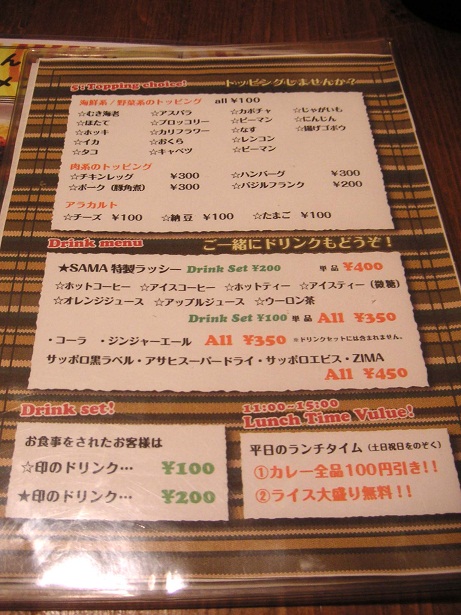 5:Topping choice! トッピングしませんか?
海鮮系/野菜系のトッピング all ¥100
☆むき海老 ☆アスパラ ☆カボチャ ☆じゃがいも
☆ほたて ☆ブロッコリー ☆ピーマン ☆にんじん
☆ホッキ ☆カリフラワー ☆なす ☆揚げゴボウ
☆イカ ☆おくら ☆レンコン
☆タコ ☆キャベツ ☆ピーマン
肉系のトッピング
☆チキンレッグ ¥300 ☆ハンバーグ ¥300
☆ポーク(豚角煮) ¥300 ☆バジルフランク ¥200
アラカルト
☆チーズ ¥100 ☆納豆 ¥100 ☆たまご ¥100
Drink menu ご一緒にドリンクもどうぞ!
★SAMA特製ラッシー Drink Set ¥200 単品 ¥400
☆ホットコーヒー ☆アイスコーヒー ☆ホットティー ☆アイスティー(微糖)
☆オレンジジュース ☆アップルジュース ☆ウーロン茶
Drink Set ¥100 単品 All ¥350
・コーラ ・ジンジャーエール All ¥350 ※ドリンクセットには含まれません。
サッポロ黒ラベル・アサヒスーパードライ・サッポロエビス・ZIMA
All ¥450
Drink set!
お食事をされたお客様は
☆印のドリンク… ¥100
★印のドリンク… ¥200
11:00~15:00
Lunch Time Vulue!
平日のランチタイム(土日祝日をのぞく)
①カレー全品100円引き!!
②ライス大盛り無料!!